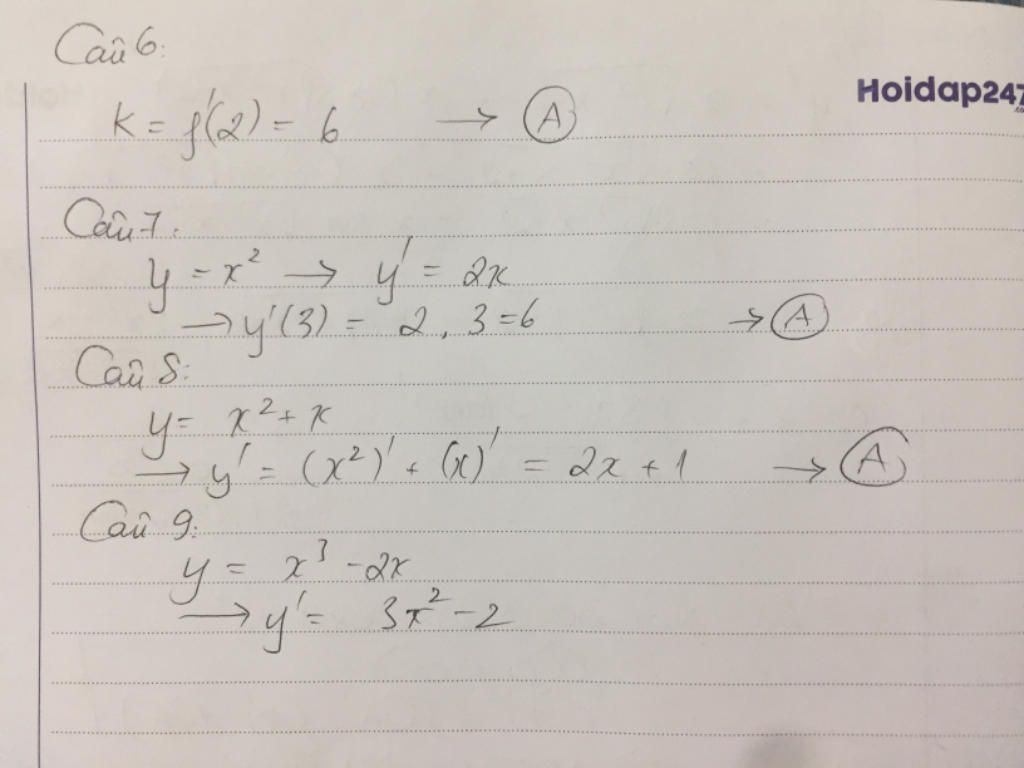 Câu 6:
Hoidap247
k = f'(2) = 6 → A
Câu 7.
y = x² → y' = 2x
→ y'(3) = 2.3 = 6 → A
Câu 8:
y = x² + x
→ y' = (x²)' + (x)' = 2x + 1 → A
Câu 9:
y = x³ - 2x
→ y' = 3x² - 2